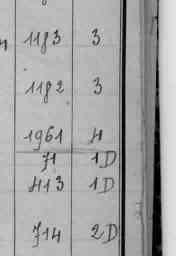 1183 3
1182 3
1961 4
71 1D
413 1D
714 2D